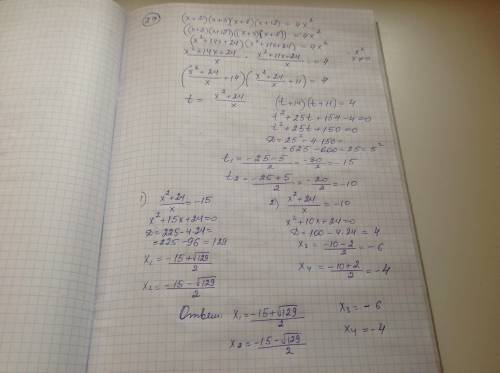 27
(x+2)(x+3)(x+8)(x+12)=4x²
((x+2)(x+12))((x+3)(x+8))=4x²
(x²+14x+24)(x²+11x+24)=4x²
x²
x≠0
(x²+14x+24)/x · (x²+11x+24)/x = 4
((x²+24)/x +14)((x²+24)/x +11)=4
t = (x²+24)/x
(t+14)(t+11)=4
t²+25t+154-4=0
t²+25t+150=0
D=25²-4·150=
=625-600=25=5²
t₁=(-25-5)/2=-30/2=-15
t₂=(-25+5)/2=-20/2=-10
1) (x²+24)/x=-15
x²+15x+24=0
D=225-4·24=
=225-96=129
x₁=(-15+√129)/2
x₂=(-15-√129)/2
2) (x²+24)/x=-10
x²+10x+24=0
D=100-4·24=4
x₃=(-10-2)/2=-6
x₄=(-10+2)/2=-4
Ответ: x₁=(-15+√129)/2
x₂=(-15-√129)/2
x₃=-6
x₄=-4